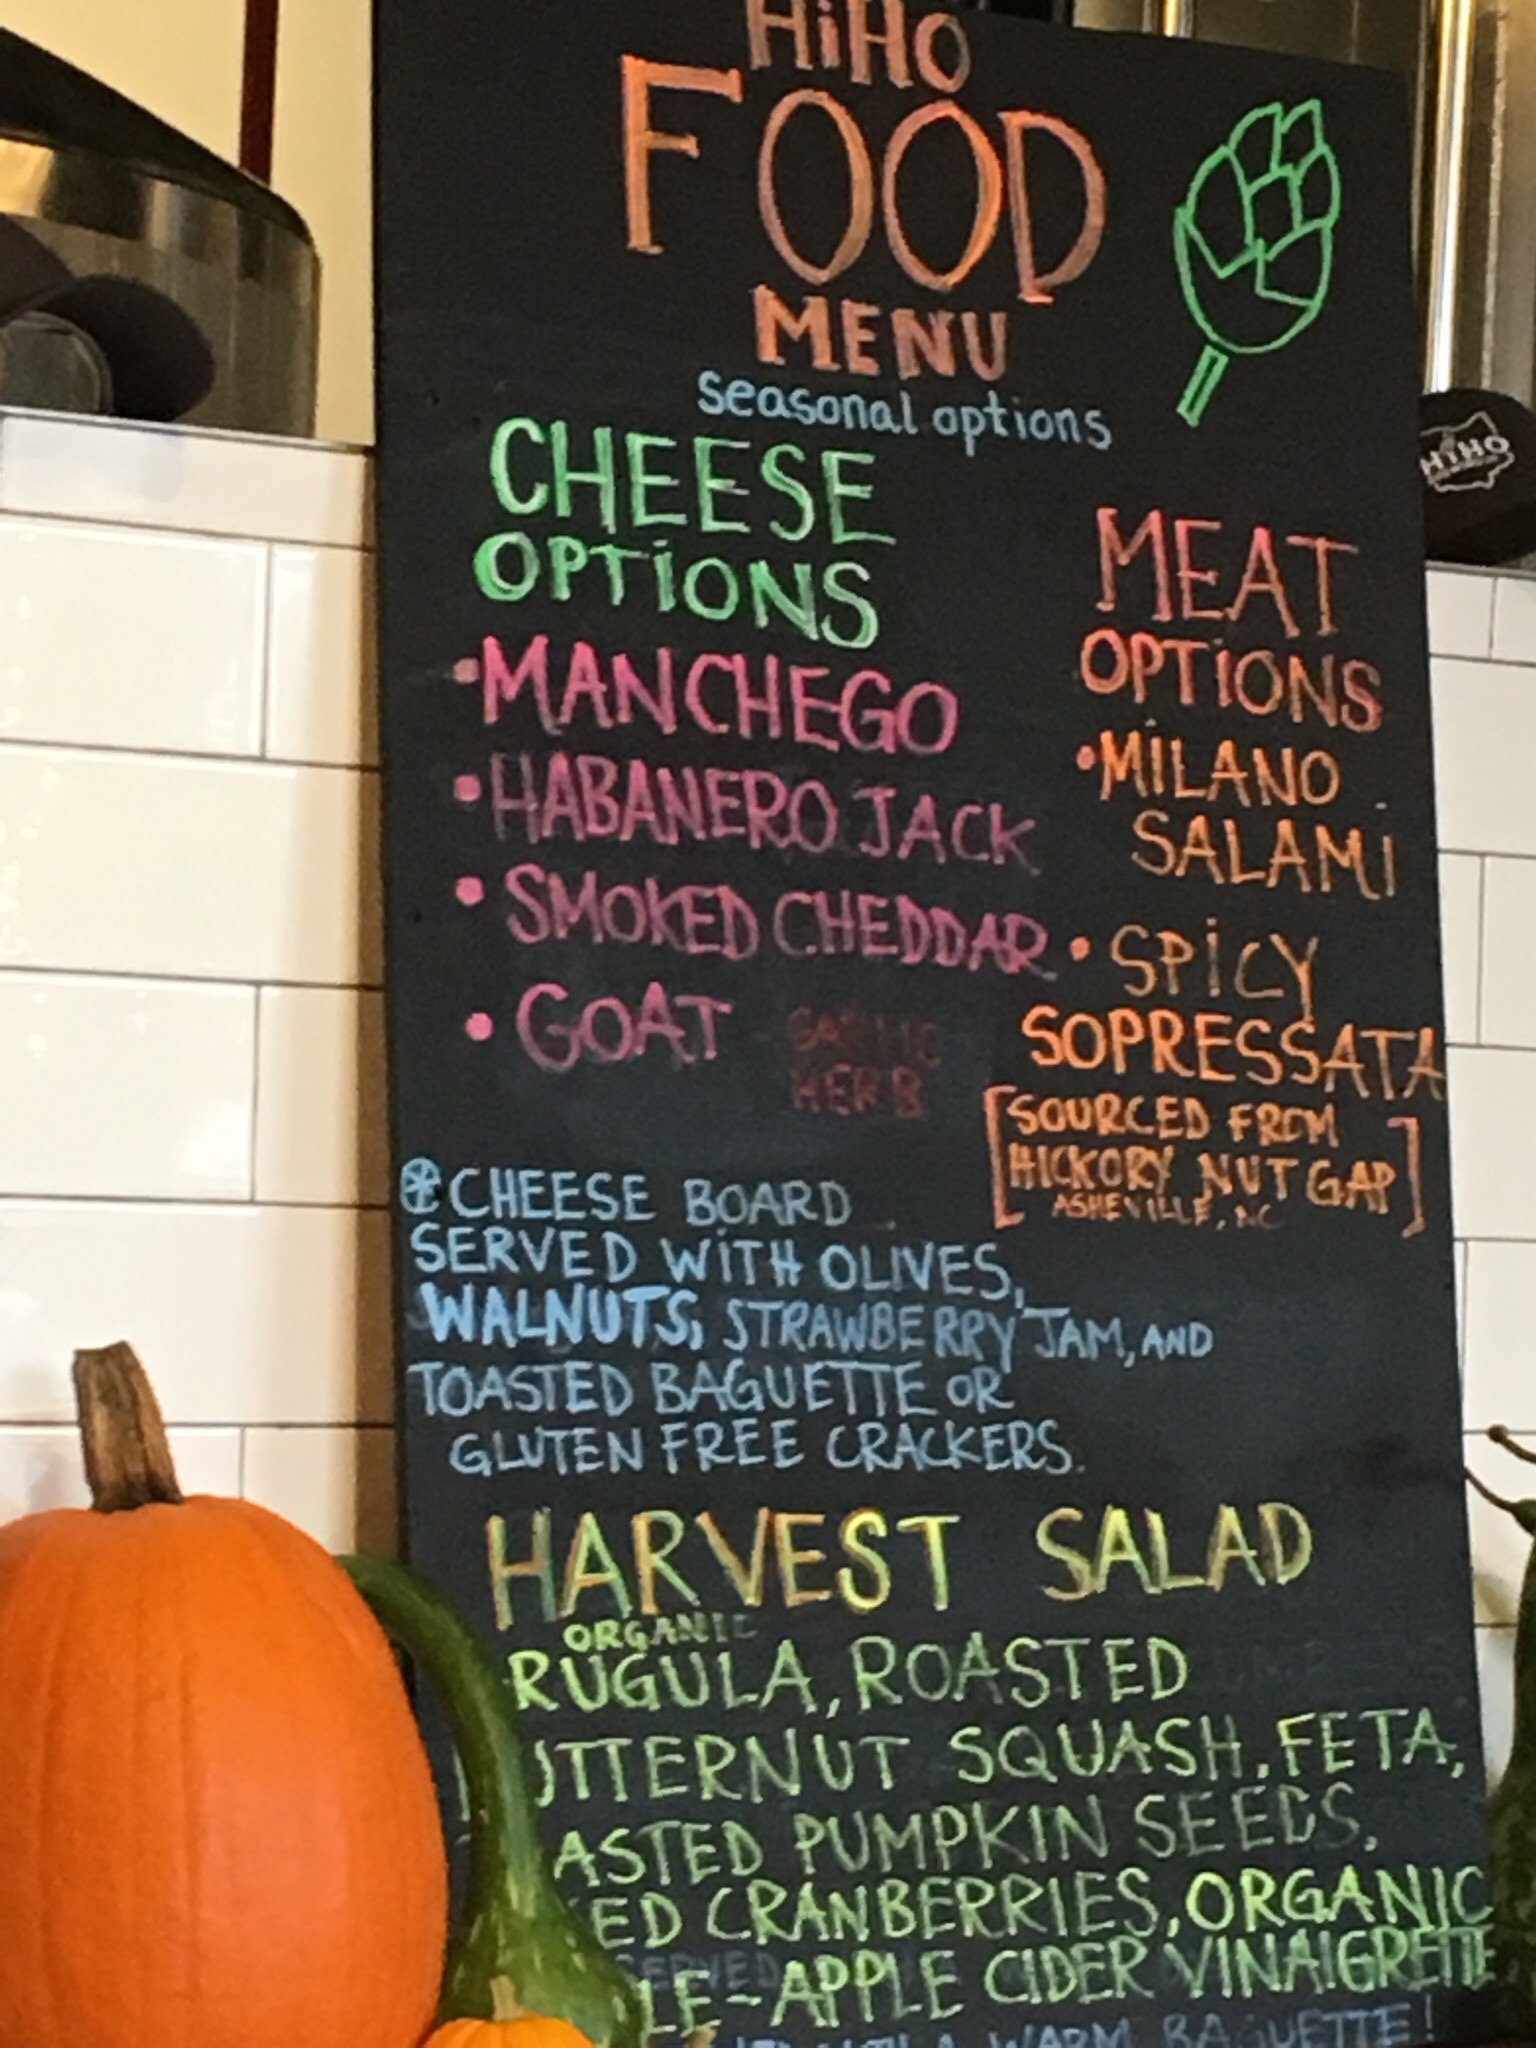 HiHO
FOOD
MENU
seasonal options
CHEESE
OPTIONS
• MANCHEGO
• HABANERO JACK
• SMOKED CHEDDAR
• GOAT
GARLIC
HERB
MEAT
OPTIONS
• MILANO
SALAMI
• SPICY
SOPRESSATA
[SOURCED FROM
HICKORY NUT GAP]
ASHEVILLE, NC
HiHO
CHEESE BOARD
SERVED WITH OLIVES,
WALNUTS, STRAWBERRY JAM, AND
TOASTED BAGUETTE OR
GLUTEN FREE CRACKERS.
HARVEST SALAD
ORGANIC
RUGULA, ROASTED
UTTERNUT SQUASH, FETA,
ASTED PUMPKIN SEEDS,
ED CRANBERRIES, ORGANIC
SERVED
LE-APPLE CIDER VINAIGRETTE
A WARM BAGUETTE!